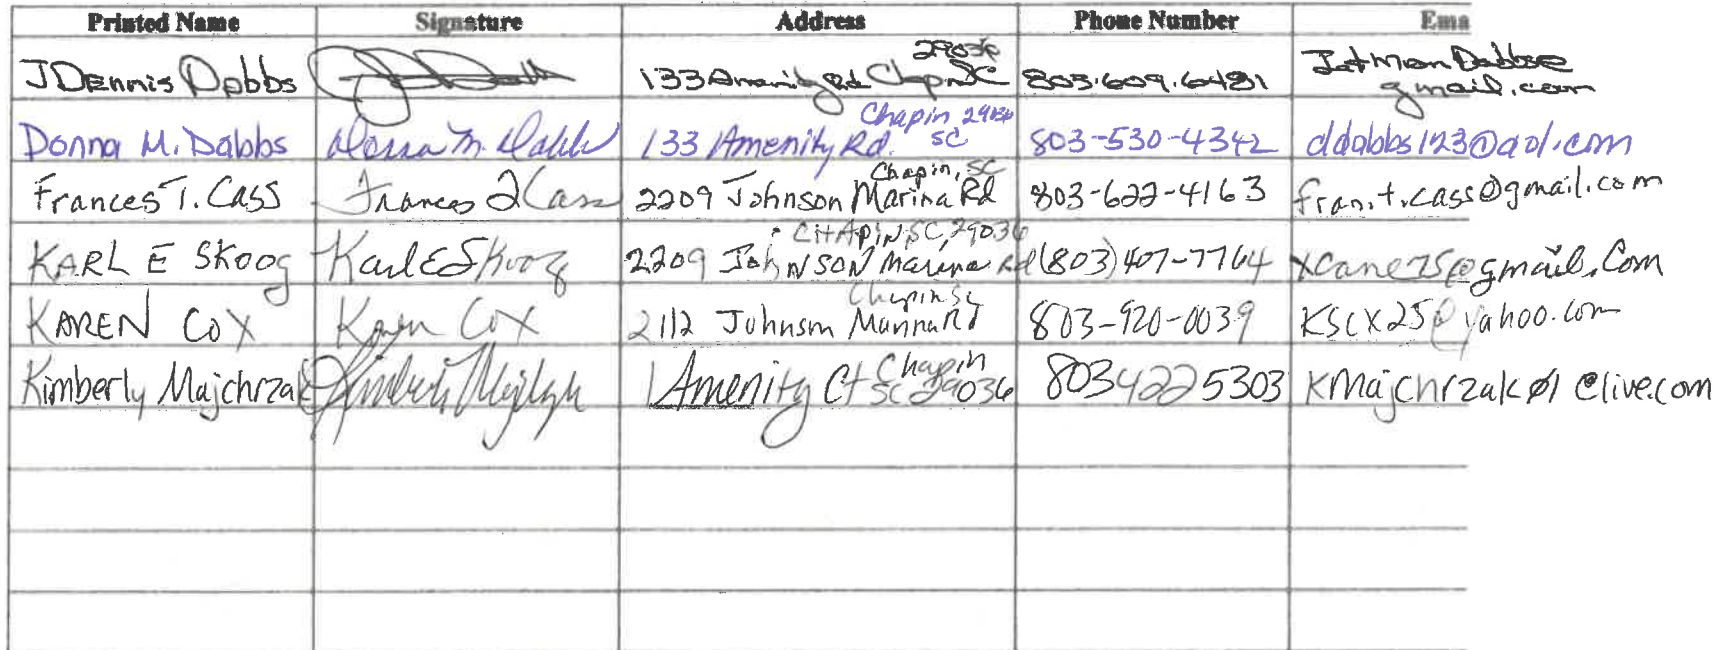 Printed Name Signature Address Phone Number Ema
J Dennis Dabbs 133 Amenity Rd Chapin SC 29036 803.609.6481 gmail.com
Donna M. Dabbs Donna M. Dabbs 133 Amenity Rd. Chapin SC 29036 803-530-4342 ddabbs123@aol.com
Frances T. Cass Frances T Cass 2209 Johnson Marina Rd Chapin, SC 803-622-4163 fran.t.cass@gmail.com
KARL E SKOOG Karl E Skoog 2209 JohNSON Marina Rd CHAPIN, SC, 29036 (803) 407-7764 @gmail.Com
KAREN COX Karen Cox 2112 Johnson Marina Rd Chapin SC 803-920-0039 KSCX25@yahoo.com
Kimberly Majchrzak Kimberly 1 Amenity Ct Chapin SC 29036 8034225303 KMajchrzak01@live.com